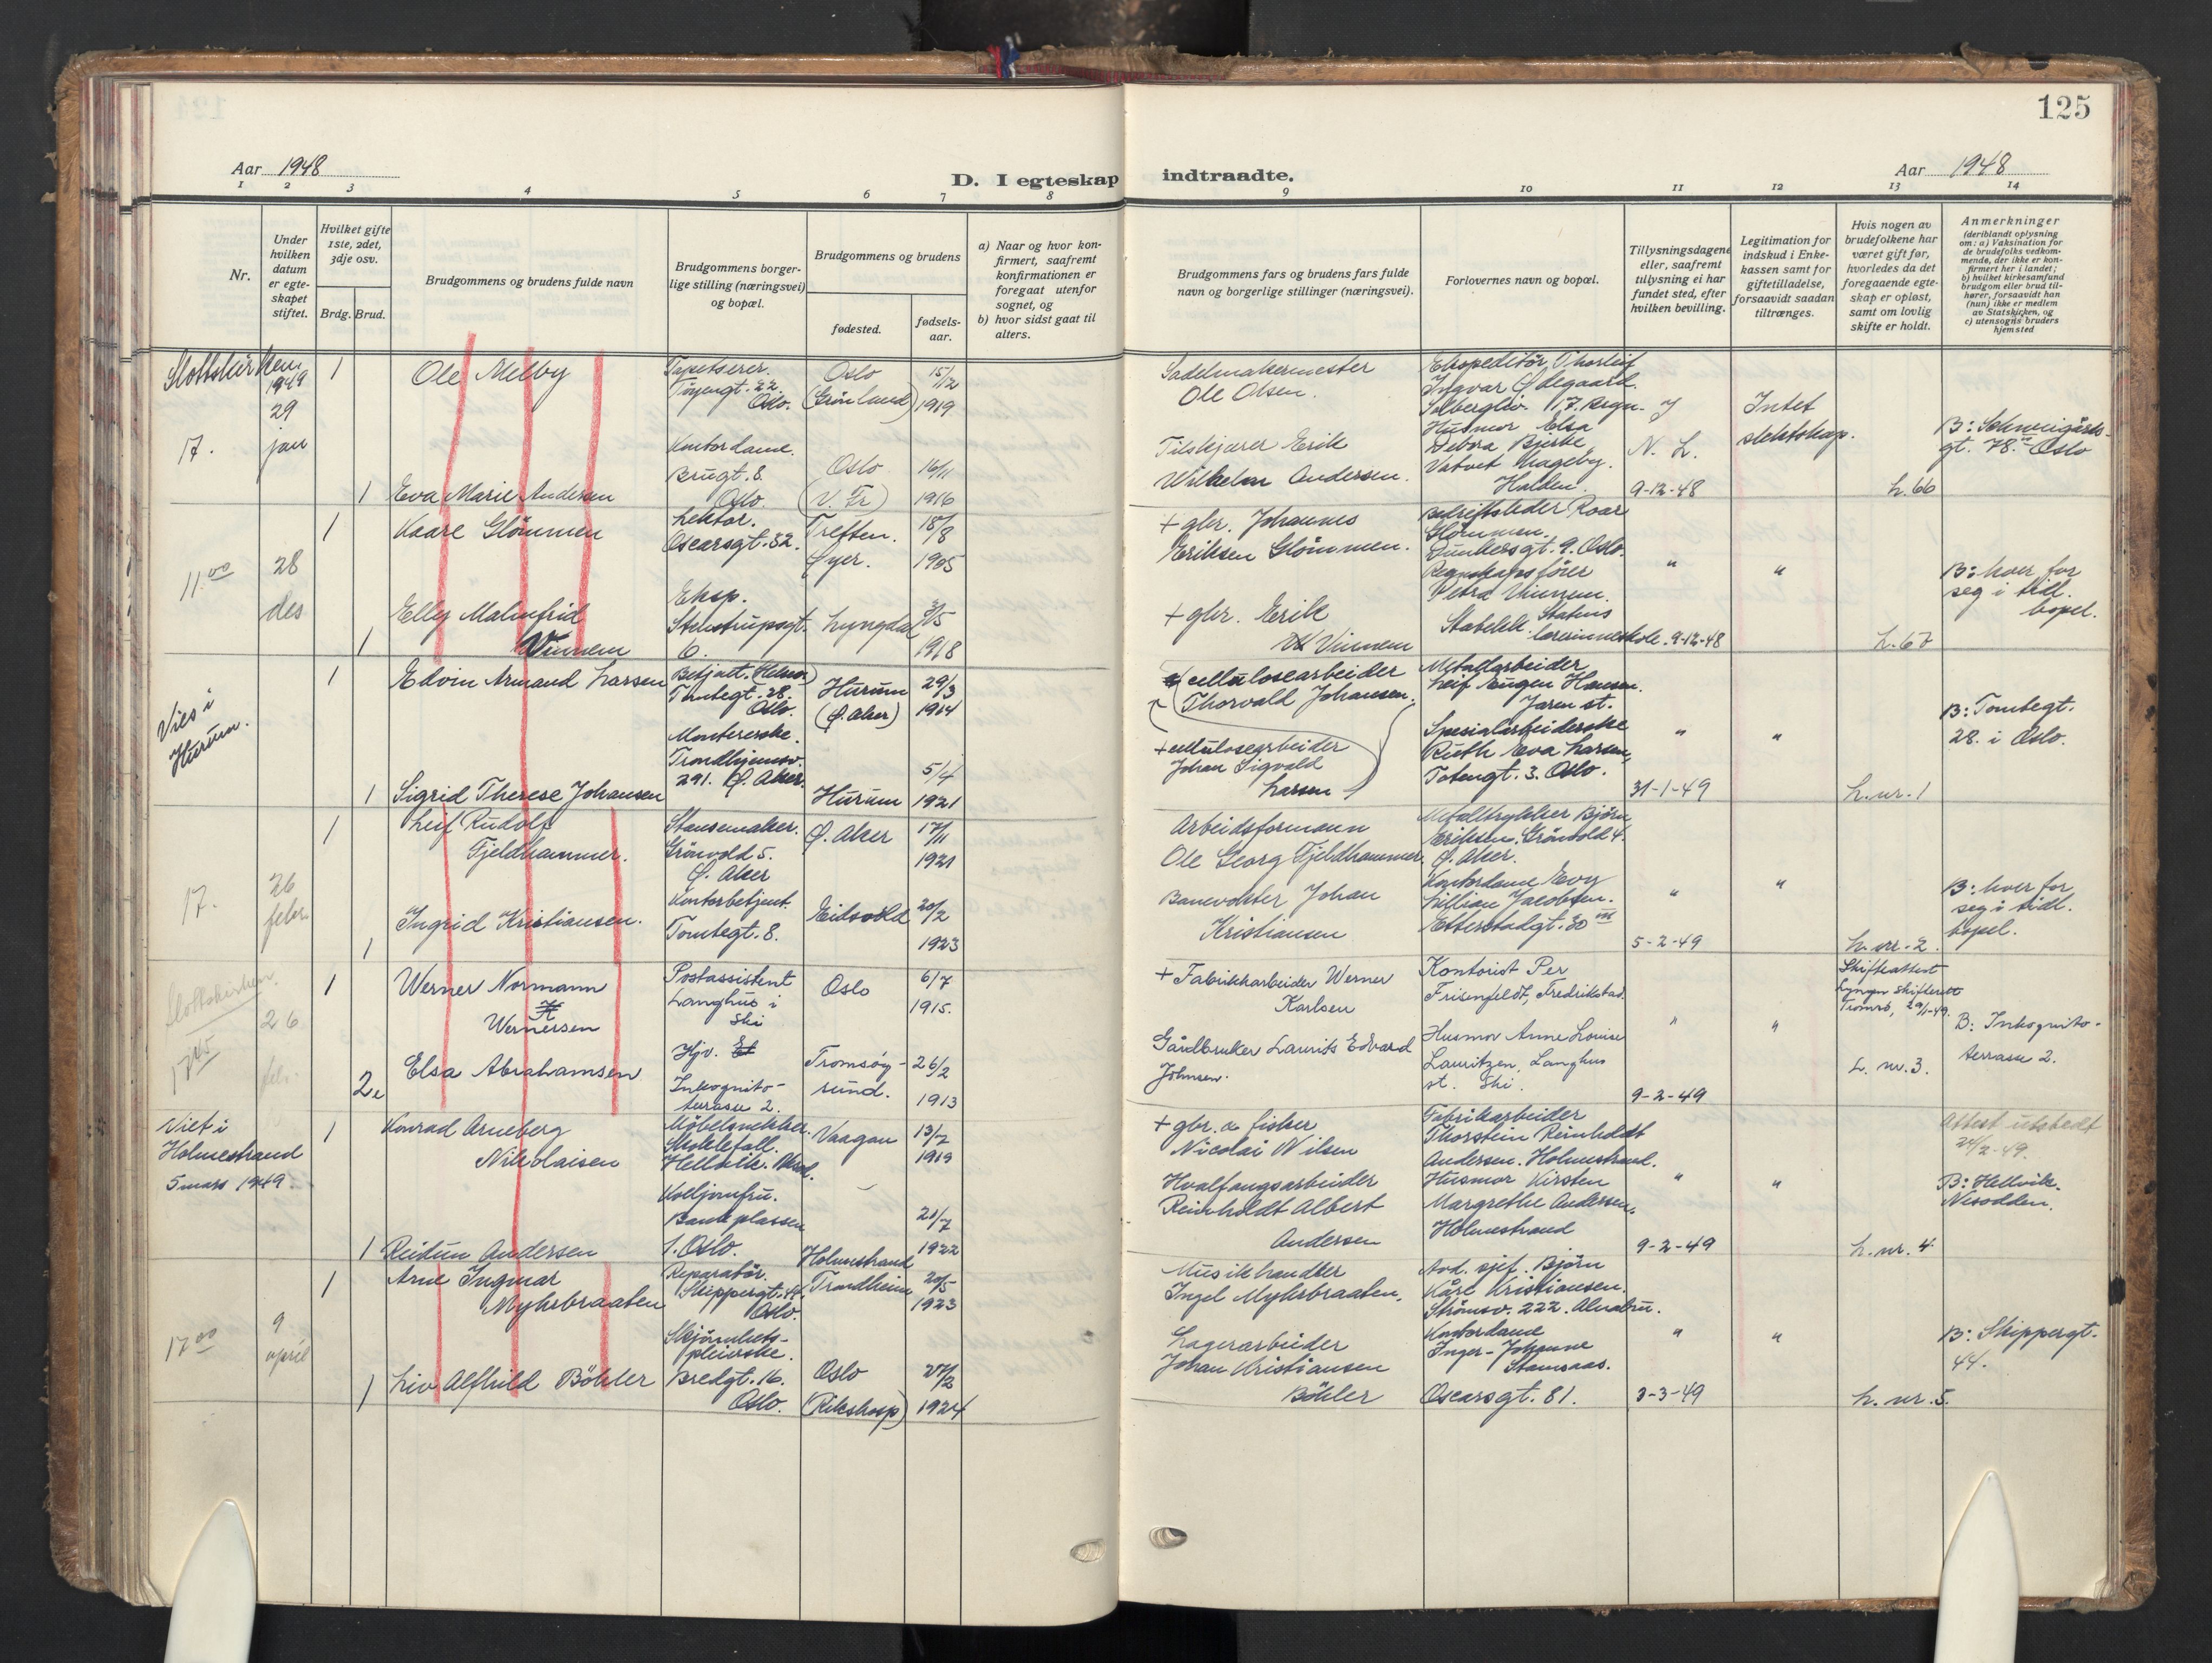 125
Aar 1948
D. I egteskap indtraadte.
Aar 1948
1 2 3 4 5 6 7 8 9 10 11 12 13 14
Nr.
Under hvilken datum er egteskapet stiftet.
Hvilket gifte 1ste, 2det, 3dje osv.
Brdg. Brud.
Brudgommens og brudens fulde navn
Brudgommens borgerlige stilling (næringsvei) og bopæl.
Brudgommens og brudens
fødested.
fødselsaar.
a) Naar og hvor konfirmert, saafremt konfirmationen er foregaat utenfor sognet, og
b) hvor sidst gaat til alters.
Brudgommens fars og brudens fars fulde navn og borgerlige stillinger (næringsvei).
Forlovernes navn og bopæl.
Tillysningsdagene eller, saafremt tillysning ei har fundet sted, efter hvilken bevilling.
Legitimation for indskud i Enkekassen samt for giftetilladelse, forsaavidt saadan tiltrænges.
Hvis nogen av brudefolkene har været gift før, hvorledes da det foregaaende egteskap er opløst, samt om lovlig skifte er holdt.
Anmerkninger
(deriblandt oplysning om: a) Vaksination for de brudefolks vedkommende, der ikke er konfirmert her i landet; b) hvilket kirkesamfund brudgom eller brud tilhører, forsaavidt han (hun) ikke er medlem av Statskirken, og c) utensogns bruders hjemsted
Slottskirken
1949
29
jan
17.
1
Ole Melby
Tapetserer.
Tøyengt. 22.
Oslo.
Oslo
(Grønland)
15/12
1919
Sadelmakermester
Ole Olsen.
Ekspeditør Thorleif
Ingvar Ødegaard.
Solbergliv. 17. Brgn.
1
Eva Marie Andersen
Kontordame.
Brugt. 8.
Oslo.
Oslo
(V. Fr)
16/11
1916
Tilskjærer Erik
Wilhelm Andersen.
Husmor Elsa
Debora Bjerke,
Vatvet Hageby.
Halden.
N. L.
9-12-48
Intet
slektskap.
L. 66
B: Schweigårds-
gt. 78. Oslo
11.00
28
des
1
Kaare Glömmen
Lektor.
Oscarsgt. 32.
Tretten.
Øyer.
18/8
1905
+ gbr. Johannes
Eriksen Glömmen.
Bedriftsleder Roar
Glömmen.
Dunkersgt. 9. Oslo.
1
Elly Malmfrid
Vinnem
Eksp.
Stenstrupsgt.
6.
Lyngdal
3/5
1918
+ gbr. Erik
Vinnem
Regnskapsfører
Petra Vinnem.
Stabekk Statens
lærerinneskole.
9-12-48
"
"
L. 67
B: hver for
seg i tidl.
bopel.
Vies i
Hurum.
1
Edvin Armand Larsen
Tomtegt. 28.
Oslo.
Hurum
(Ø. Aker)
29/3
1914
cellulosearbeider
Thorvald Johansen.
Metalarbeider
Leif Eugen Hansen.
Jaren st.
1
Sigrid Therese Johansen
Montererske.
Trondhjemsv.
291. Ø. Aker.
Hurum
5/4
1921
+ cellulosearbeider
Johan Sigvald
Larsen
Spesialarbeiderske
Ruth Eva Larsen,
Totengt. 3. Oslo.
31-1-49
"
"
L. nr. 1
B: Tomtegt.
28. i Oslo.
17.
26
febr.
1
Leif Rudolf
Fjeldhammer.
Stansemaker.
Grönvold 5.
Ø. Aker
Ø. Aker
17/11
1921
Arbeidsformann
Ole Georg Fjeldhammer
Metalltrykker Björn
Eriksen, Grönvold 4.
Ø. Aker.
1
Ingrid Kristiansen.
Kontorbetjent.
Tomtegt. 8.
Eidsvold
20/2
1923
Banevokter Johan
Kristiansen
Kontordame Evy
Lillian Jacobsen.
Etterstadgt. 30
5-2-49
"
"
L. nr. 2.
B: hver for
seg i tidl.
bopel.
Slottskirken.
1745
26
feb.
1
Werner Normann
Wernersen
Postassistent
Langhus i
Ski
Oslo
6/7
1915.
+ Fabrikkarbeider Werner
Karlsen
Kontorist Per
Frisenfeldt, Fredrikstad.
2.
Elsa Abrahamsen
Hjv.
Inkognito-
terasse 2.
Tromsøy-
sund.
26/2
1913
Gårdbruker Laurits Edvard
Johnsen.
Husmor Anne Louise
Lauritzen, Langhus
st. Ski.
9-2-49
"
"
Skifteattest
Lyngen skifterett
Tromsö, 29/1-49.
L. nr. 3.
B: Inkognito-
terrasse 2.
Viet i
Holmestrand
5 mars 1949.
1
Konrad Arneberg
Nikolaisen
Möbelsnekker.
Skoklefall.
Hellvik. Nesod.
Vaagan
13/7
1919
+ gbr. & fisker
Nicolai Nilsen
Fabrikarbeider
Thorstein Reinholdt
Andersen. Holmestrand.
1
Reidun Andersen
Koldjomfru.
Bankplassen
1. Oslo.
Holmestrand
21/7
1922
Hvalfangsarbeider
Reinholdt Albert
Andersen
Husmor Kirsten
Margrethe Andersen,
Holmestrand
9-2-49
"
"
L. nr. 4.
Attest utstedt
24/2-49.
B: Hellvik.
Nesodden.
17.00
9
april
1
Arne Ingmar
Myhrbraaten
Reparatör.
Skippergt. 44.
Oslo.
Trondheim
20/5
1923
Musikhandler
Ingel Myhrbraaten.
Avd. sjef. Björn
Kåre Kristiansen.
Strömsv. 222. Alnabru.
1
Liv Alfhild Böhler
Skjönnhets-
pleierske.
Bredgt. 16.
Oslo.
Oslo
(Rikshosp)
27/2
1924
Lagerarbeider
Johan Kristiansen
Böhler
Kontordame
Inger-Johanne
Stamsaas.
Oscarsgt. 81.
3-3-49
"
"
L. nr. 5.
B: Skippergt.
44.